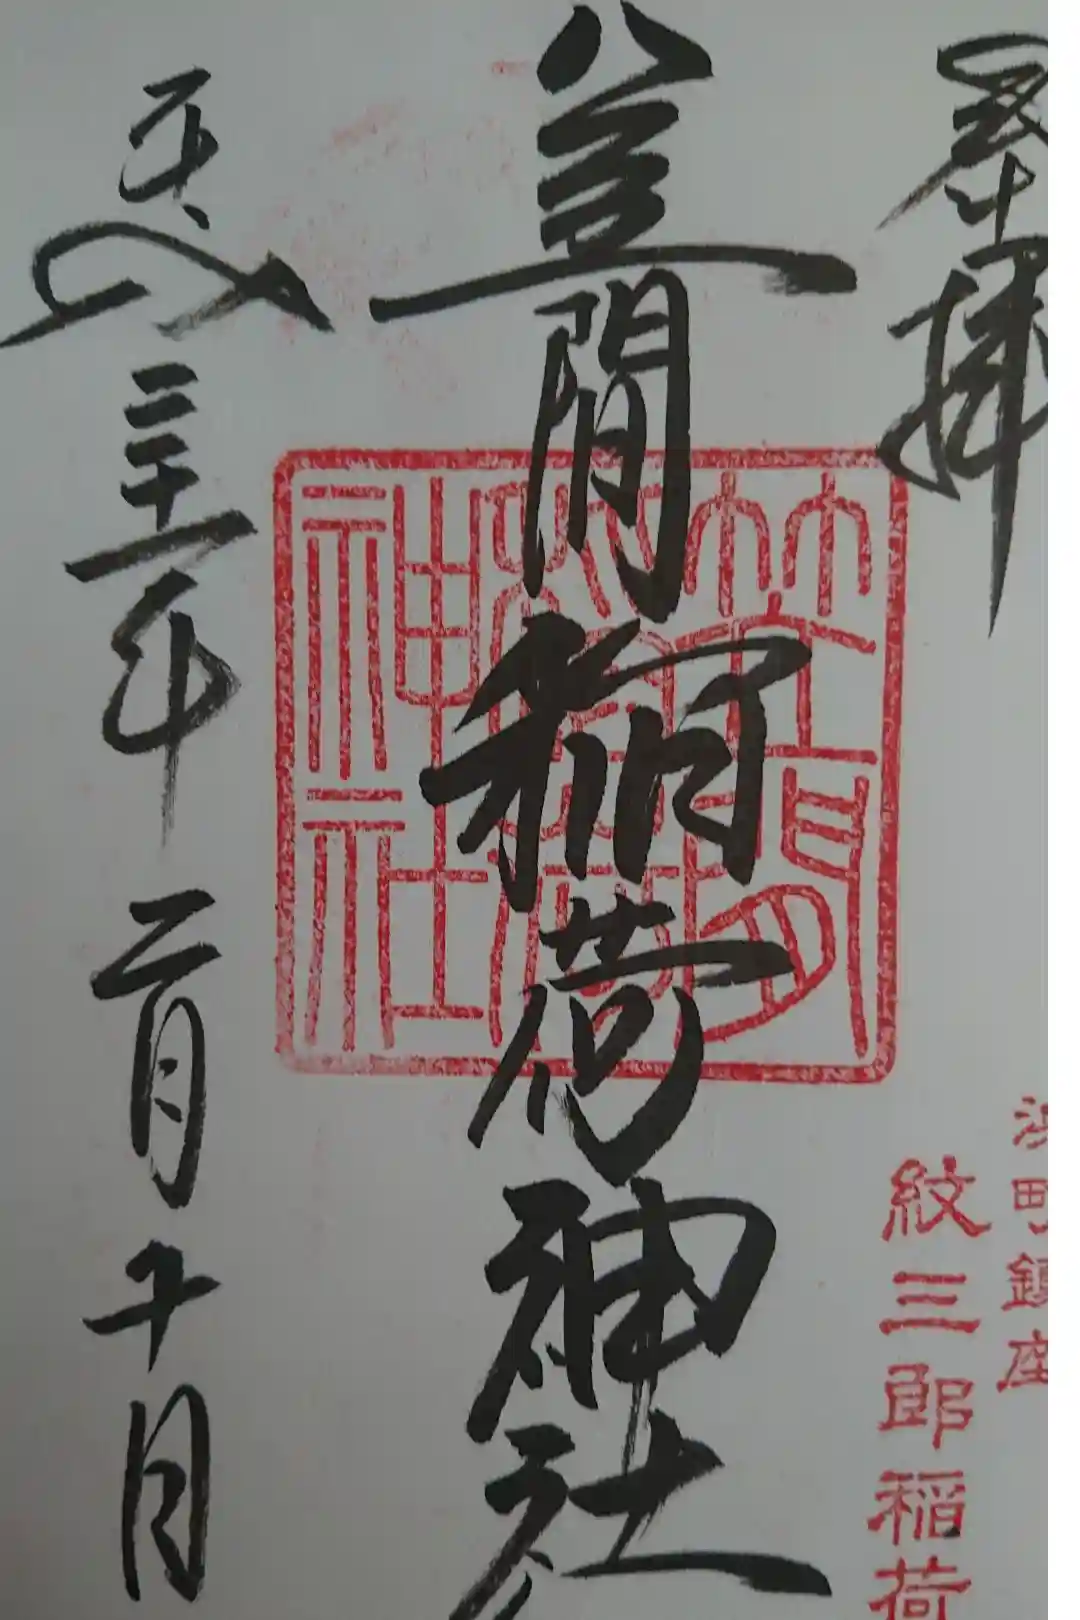 奉拝
浜町鎮座
紋三郎稲荷
笠間稲荷神社
笠間
稲荷
神社
平成三十一年二月十日